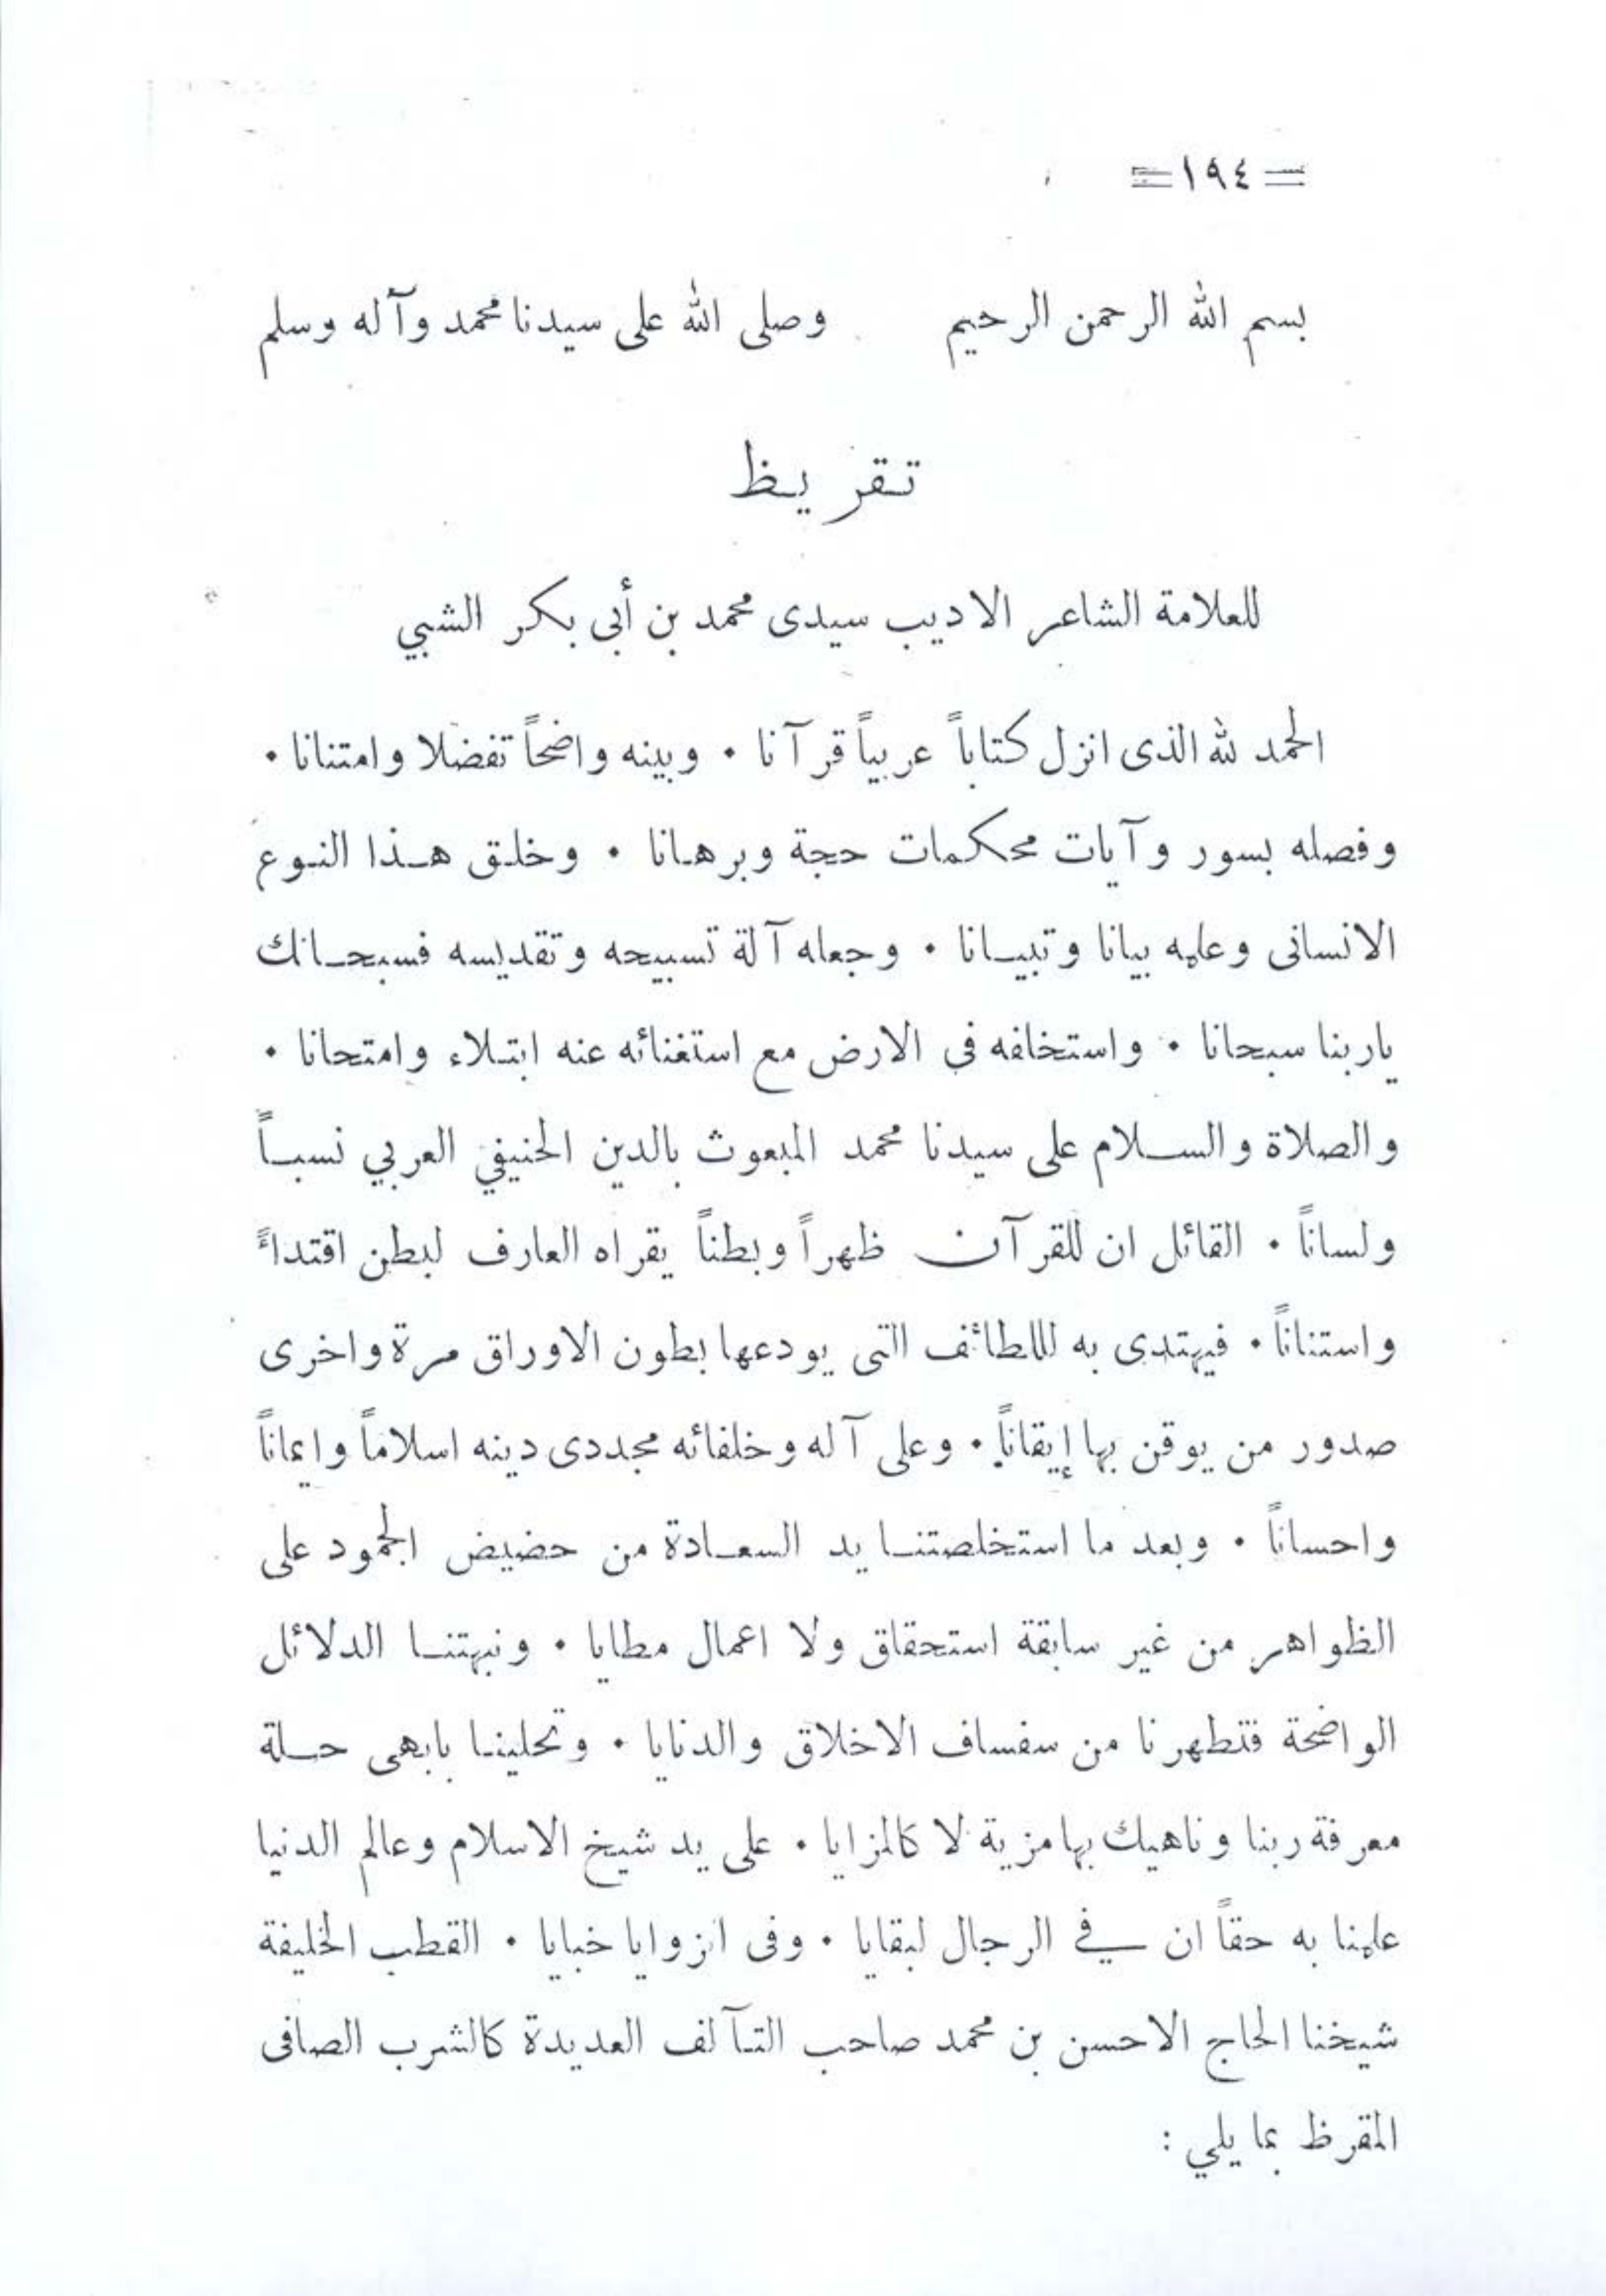 =١٩٤=
بسم الله الرحمن الرحيم وصلى الله على سيدنا محمد وآله وسلم
تقريظ
للعلامة الشاعر الاديب سيدى محمد بن أبى بكر الشبي
الحمد لله الذى انزل كتاباً عربياً قرآنا • وبينه واضحاً تفضلا وامتنانا •
وفصله بسور وآيات محكمات حجة وبرهانا • وخلق هذا النوع
الانسانى وعلمه بيانا وتبيانا • وجعله آلة تسبيحه وتقديسه فسبحانك
ياربنا سبحانا • واستخلفه فى الارض مع استغنائه عنه ابتلاء وامتحانا •
والصلاة والسلام على سيدنا محمد المبعوث بالدين الحنيفي العربي نسباً
ولساناً • القائل ان للقرآن ظهراً وبطناً يقراه العارف لبطن اقتداءً
واستناناً • فيهتدى به لللطائف التى يودعها بطون الاوراق مرة واخرى
صدور من يوقن بها إيقاناً • وعلى آله وخلفائه مجددى دينه اسلاماً وايماناً
واحساناً • وبعد ما استخلصتنا يد السعادة من حضيض الجمود على
الظواهر من غير سابقة استحقاق ولا اعمال مطايا • ونبهتنا الدلائل
الواضحة فتطهرنا من سفساف الاخلاق والدنايا • وتحلينا بابهى حلة
معرفة ربنا وناهيك بها مزية لا كالمزايا • على يد شيخ الاسلام وعالم الدنيا
علمنا به حقاً ان في الرجال لبقايا • وفى الزوايا خبايا • القطب الخليفة
شيخنا الحاج الاحسن بن محمد صاحب التآلف العديدة كالشرب الصافى
المقرظ بما يلي :